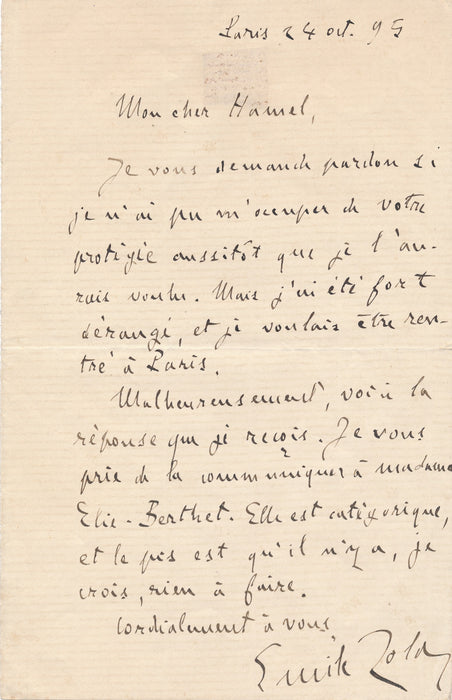 Paris 24 oct. 95
Mon cher Hamel,
Je vous demande pardon si
je n'ai pu m'occuper de votre
protégée aussitôt que je l'au-
rais voulu. Mais j'ai été fort
dérangé, et je voulais être ren-
tré à Paris.
Malheureusement, voici la
réponse que je reçois. Je vous
prie de la communiquer à madame
Elie-Berthet. Elle est catégorique,
et le pis est qu'il n'y a, je
crois, rien à faire.
Cordialement à vous
Emile Zola